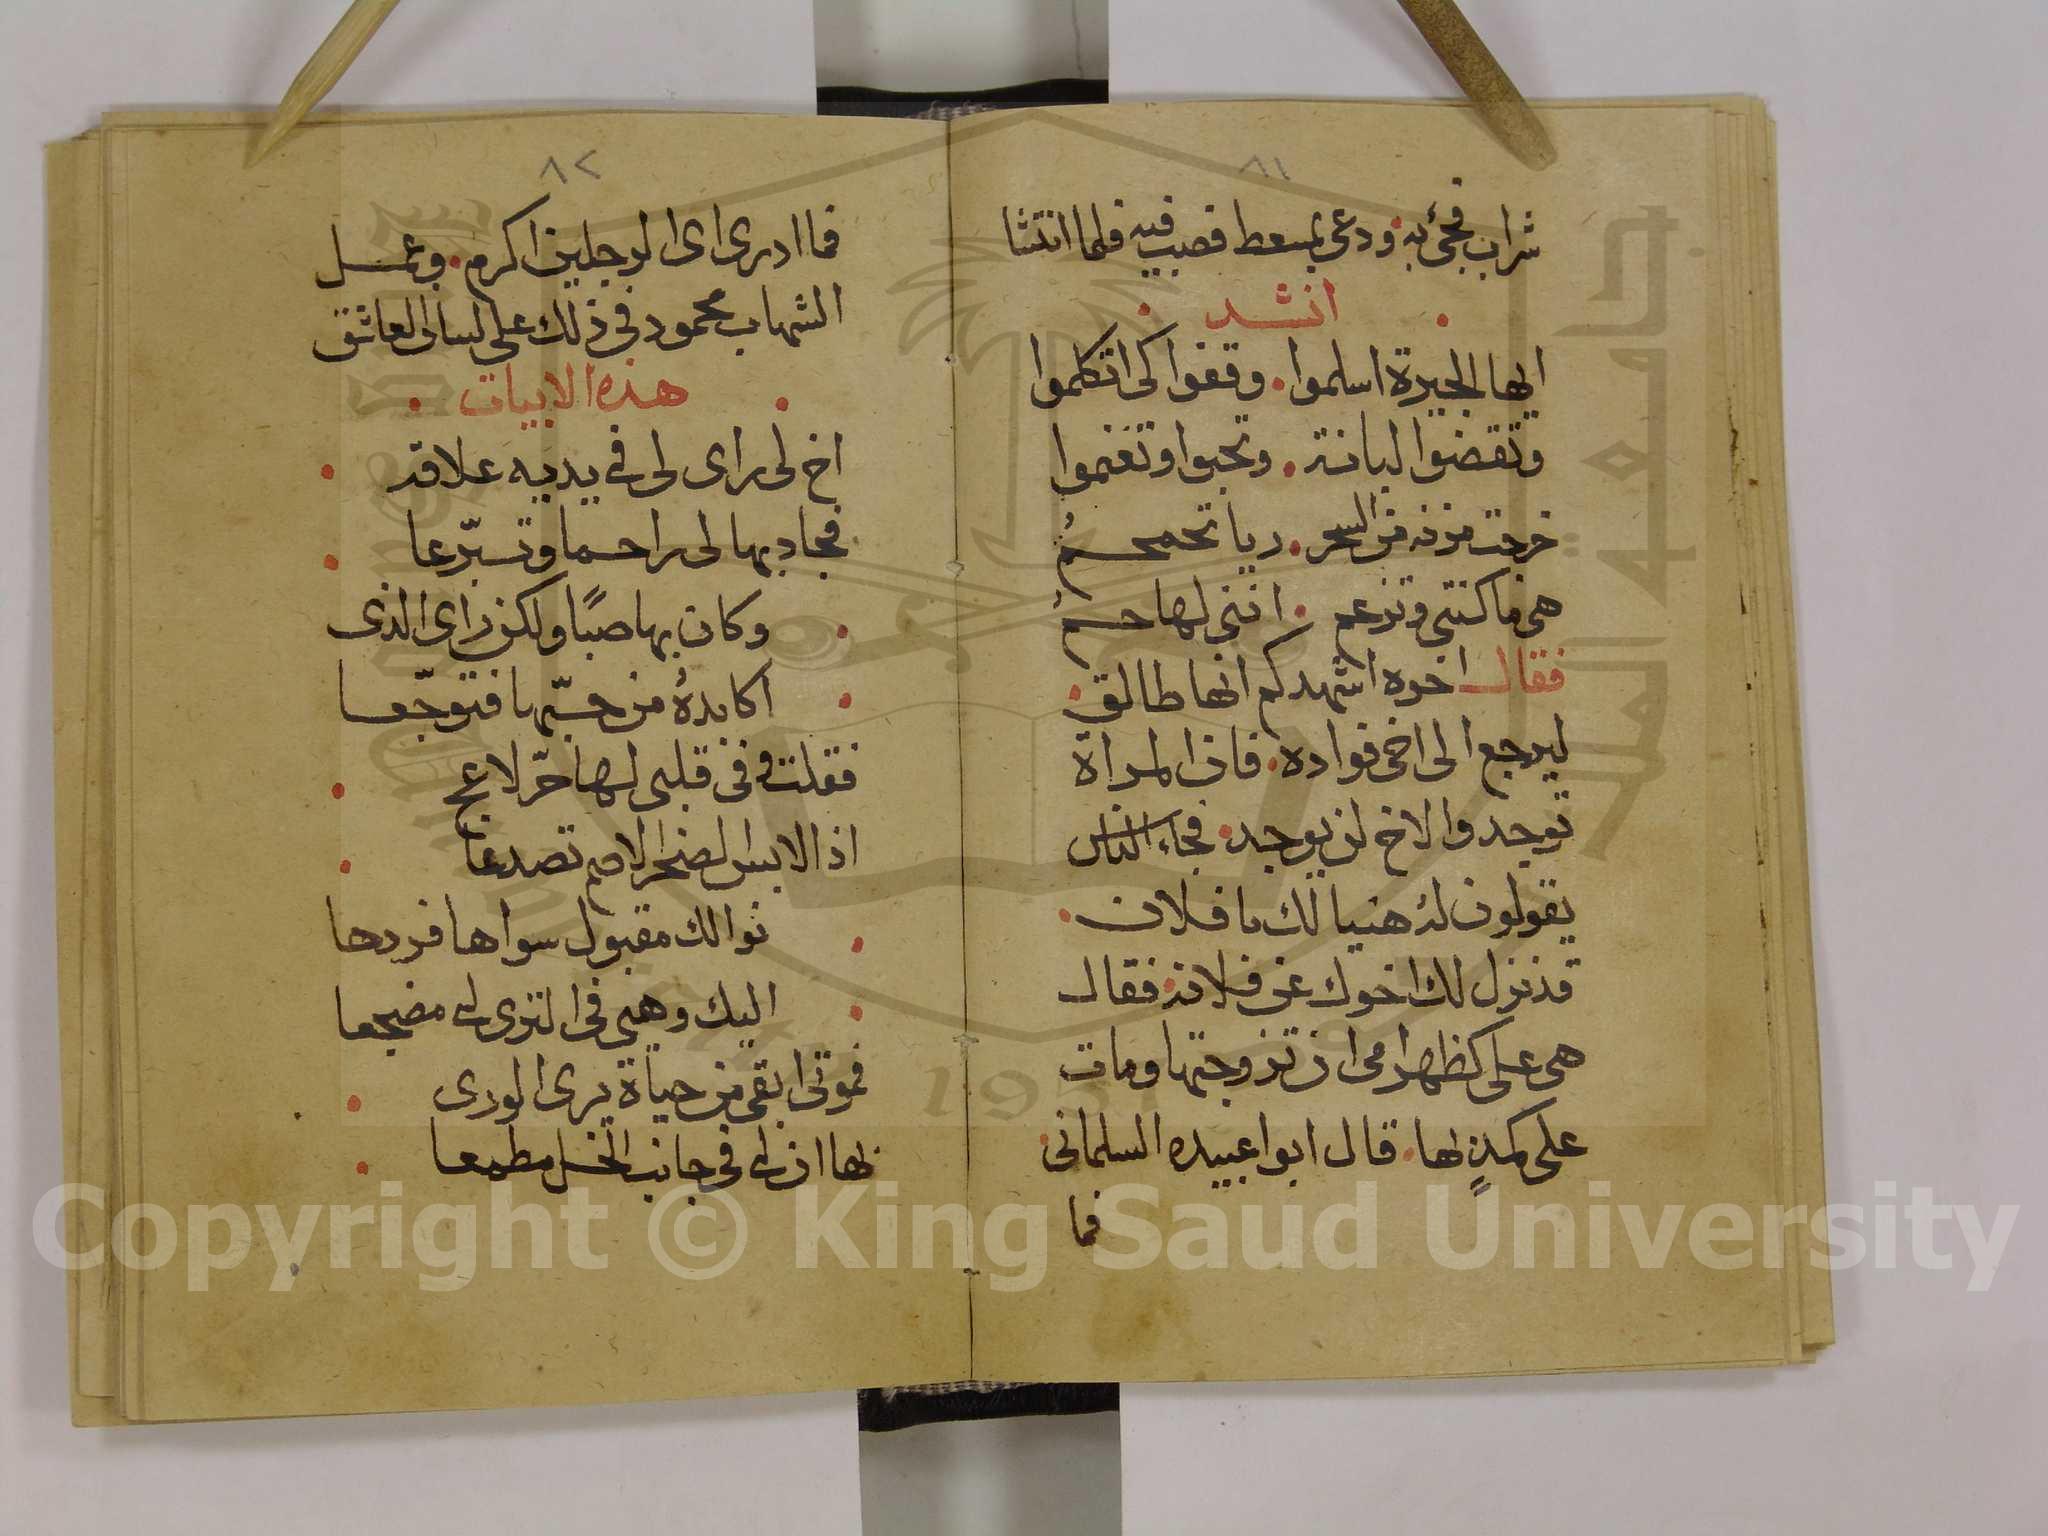 ٨١
شراب فجئ به ودعى بمسعط فصب فيه فلما انتشا
انشد
ايها الجيرة اسلموا وقفوا كى اتكلموا
وتقضوا لبانة وتحبوا وتغنموا
خرجت مزنه من البحر ريا تحمحم
هى ما كنتى وتزعم اننى لها حم
فقال اخوه اشهدكم انها طالق
ليرجع الى اخى فواده فان المراة
توجد والاخ لن يوجد فجاء الناس
يقولون له هنيا لك يا فلان
قد نزل لك اخوك عن فلانة فقال
هى على كظهر امى ان تزوجتها ومات
على كمدٍ لها قال ابوا عبيده السلمانى
فما
٨٢
فما ادرى اى الرجلين اكرم وعمل
الشهاب محمود فى ذلك على لسان العاشق
هذه الابيات
اخ لى راى لى فى يديه علاقة
فجاد بها لى راحما وتبرّعا
وكان بها صبًا ولكن راى الذى
اكابدهُ من حبّها فتوجّعا
فقلت وفى قلبى لها حرّ لاعج
اذا لابس الصخر الاصم تصدعا
نوالك مقبول سواها فردها
اليك وهبنى فى الثرى لى مضجعا
فموتى ابقى من حياة يرى الورى
بها ان لى فى جانب الخل مطمعا
Copyright © King Saud University
جامعة الملك
1957